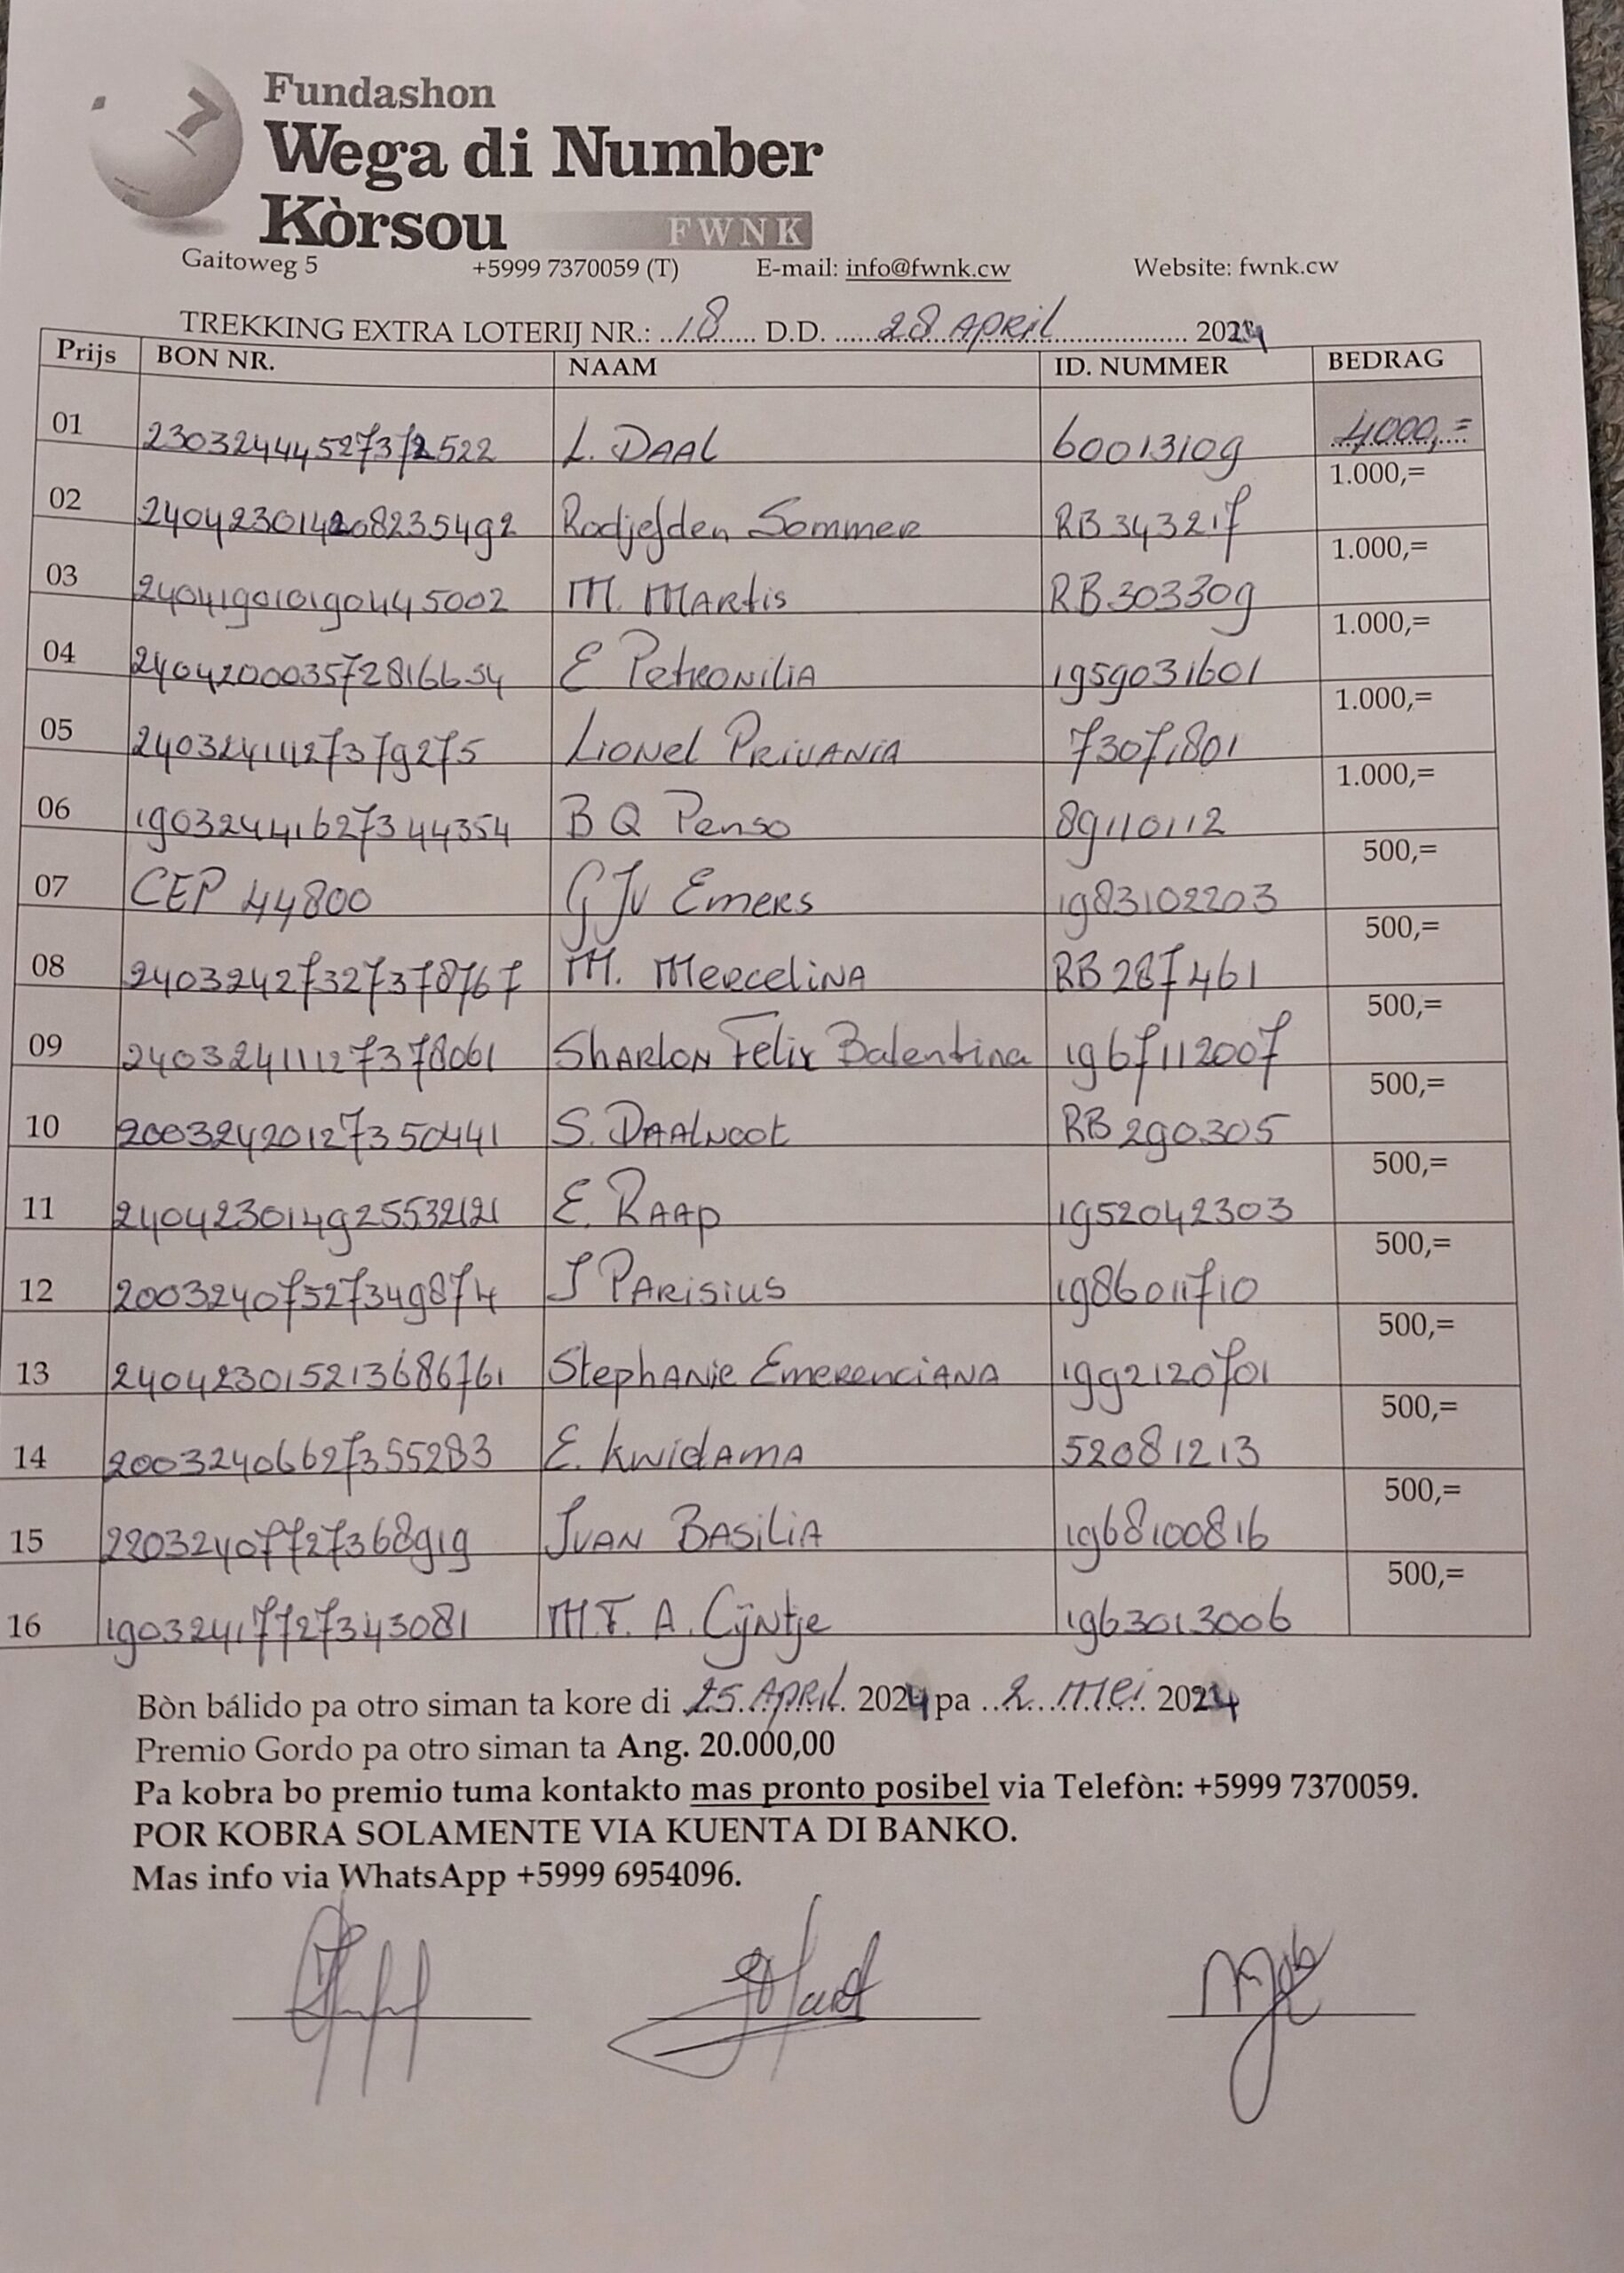 Fundashon
Wega di Number
Kòrsou FWNK
Gaitoweg 5 +5999 7370059 (T) E-mail: info@fwnk.cw Website: fwnk.cw
TREKKING EXTRA LOTERIJ NR.: 18 D.D. 28 APRIL 2024
Prijs BON NR. NAAM ID. NUMMER BEDRAG
01 23032444527372522 L. DAAL 60013109 4000,=
02 240423014208235492 Rodjefden Sommer RB343217 1.000,=
03 2404190101904445002 M. MARtis RB303309 1.000,=
04 240420003572816654 E PetRONiliA 1959031601 1.000,=
05 24032411127379275 LiONel PRiVANiA 73071801 1.000,=
06 19032441627344354 B Q Penso 89110112 1.000,=
07 CEP 44800 G JV EmeRS 1983102203 500,=
08 24032427327378767 M. MeRceliNA RB287461 500,=
09 24032411127378061 SHARLON Felix Balentina 1967112007 500,=
10 20032420127350441 S. DAALNOOt RB290305 500,=
11 240423014925532121 E. RAAp 1952042303 500,=
12 20032407527349874 J PARisius 1986011710 500,=
13 2404230152136867​61 StepHANie EmeRenciANA 1992120701 500,=
14 20032406627355283 E. KwidAmA 52081213 500,=
15 22032407727368919 JuAN BASiLiA 1968100816 500,=
16 19032417727343081 M.T. A. Cijntje 1963013006 500,=
Bòn bálido pa otro siman ta kore di 25 APRIL 2024 pa 2 Mei 2024
Premio Gordo pa otro siman ta Ang. 20.000,00
Pa kobra bo premio tuma kontakto mas pronto posibel via Telefòn: +5999 7370059.
POR KOBRA SOLAMENTE VIA KUENTA DI BANKO.
Mas info via WhatsApp +5999 6954096.